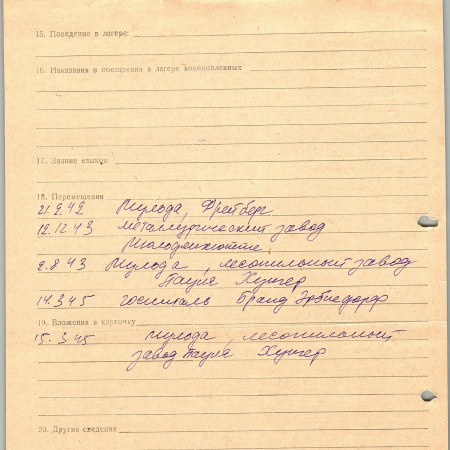 15. Поведение в лагере:
16. Наказания и поощрения в лагере военнопленных
17. Знание языков
18. Перемещения
21.2.42 Мулода, Фрейберг
12.12 43 металлургический завод
Мюлоденхютте
2.8 43 Мулода, лесопильный завод
Пауле Хунгер
14.3 45 госпиталь Бранд Эрбисдорф
19. Вложения в карточку
15.3.45 Мулода, лесопильный
завод Пауле Хунгер
20. Другие сведения